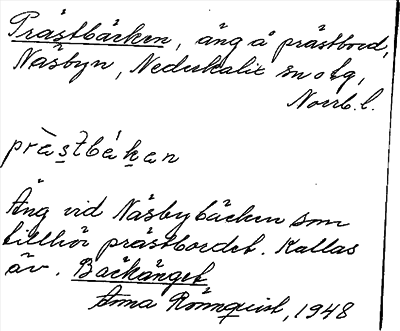 Prästbäcken, äng å prästbord,
Näsbyn, Nederkalix sn o tg,
Norrb. l.
prà̀s̱tbákan
Äng vid Näsbybäcken som
tillhör prästbordet. Kallas
äv. Bäckänget
Anna Rönnquist, 1948